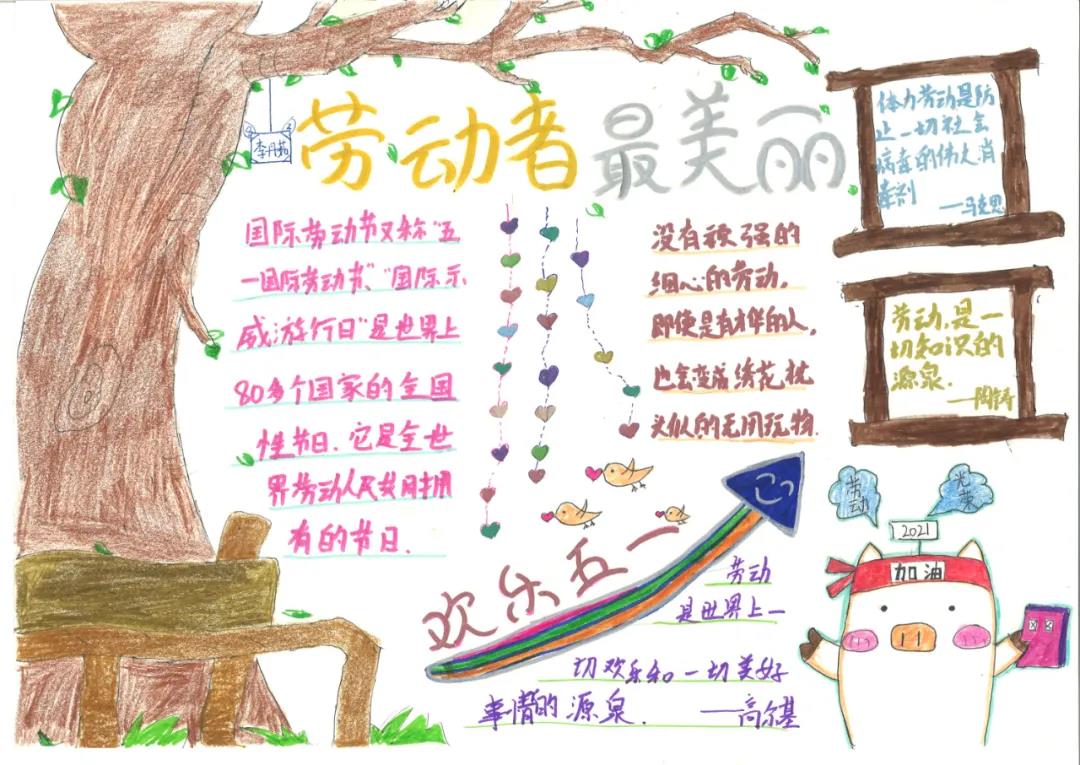 劳动者最美丽
李丹茹
国际劳动节又称“五
一国际劳动节”、“国际示
威游行日”是世界上
80多个国家的全国
性节日.它是全世
界劳动人民共同拥
有的节日.
没有顽强的
细心的劳动，
即使是有才华的人，
也会变成绣花枕
头似的无用玩物.
体力劳动是防
止一切社会
病毒的伟大消
毒剂
——马克思
劳动，是一
切知识的
源泉.
——陶铸
欢乐五一
劳动
是世界上一
切欢乐和一切美好
事情的源泉.
——高尔基
劳动
光荣
2021
加油